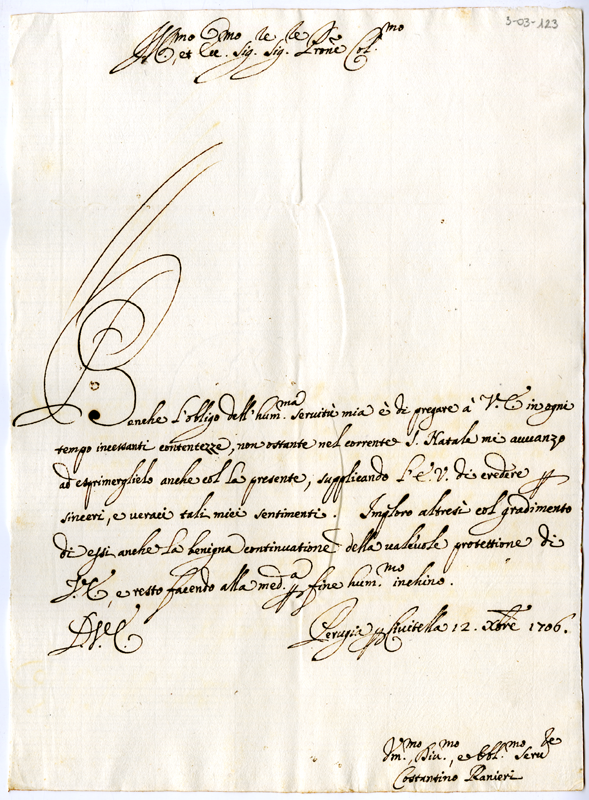 3-03-123
Ill.mo
et Ecc. Sig. Sig. Prone Col.mo
Benche l'obligo dell'hum.ma servitù mia è di pregare à V. E in ogni
tempo incessanti contentezze, non ostante nel corrente S. Natale mi avvanzo
ad esprimerglielo anche col la presente, supplicando l'E. V. di credere
sinceri, e veraci tali miei sentimenti. Imploro altresì col gradimento
di essi anche la benigna continuatione della valevole protettione di
V. E, e resto facendo alla med.a fine hum.mo inchino.
D. V. E
Perugia p Civitella 12. Xbre 1706.
Um.mo, Div.mo, e obbl.mo Serv.re
Costantino Ranieri